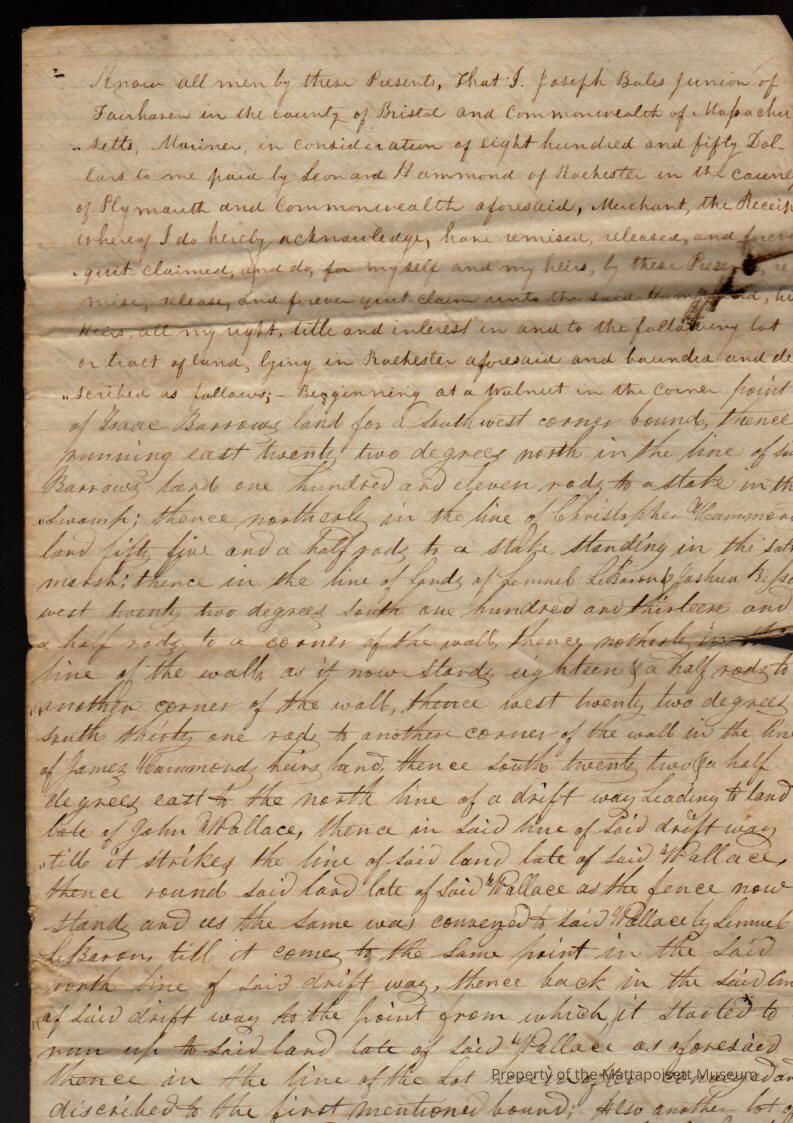 Know all men by these Presents, That I. Joseph Bates Junion of
Fairhaven in the county of Bristol and Commonwealth of Massachu
"setts, Mariner, in consideration of eight hundred and fifty Dol-
lars to me paid by Leonard Hammond of Rochester in the county
of Plymouth and Commonwealth aforesaid, Merchant, the Receip
whereof I do hereby acknowledge, have remised, released, and forev
quit claimed, and do, for myself and my heirs, by these Prese re
mise, release, and forever quit-claim unto the said Hammond, hi
Heirs, all my right, title and interest in and to the following lot
or tract of land, lying in Rochester aforesaid and bounded and de
"scribed as follows; - Beginning at a Walnut in the corner point
of Isaac Barrows land for a Southwest corner bound, thence
running east twenty two degrees north in the line of sai
Barrows land one hundred and eleven rods to a stake in the
Swamp; thence northerly in the line of Christopher Hammond
land fifty five and a half rods to a stake standing in the salt
marsh; thence in the line of lands of Lemuel LeBaron & Joshua Besse
west twenty two degrees south one hundred and thirteen and
a half rods to a corner of the wall, thence notherly in the
line of the wall, as it now stands eighteen & a half rods to
another corner of the wall, thence west twenty two degrees
south thirty one rods to another corner of the wall in the line
of James Hammonds heirs land, thence south twenty two & a half
degrees east to the north line of a drift way leading to land
late of John Wallace, thence in said line of said drift way
till it strikes the line of said land late of said Wallace,
thence round said land late of said Wallace as the fence now
stands and as the same was conveyed to said Wallace by Lemuel
LeBaron, till it comes to the same point in the said
north line of said drift way, thence back in the said lin
of said drift way to the point from which it started to
run up to said land late of said Wallace as aforesaid
thence in the line of the Lot
discribed to the first mentioned bound; Also another lot of
Property of the Mattapoisett Museum